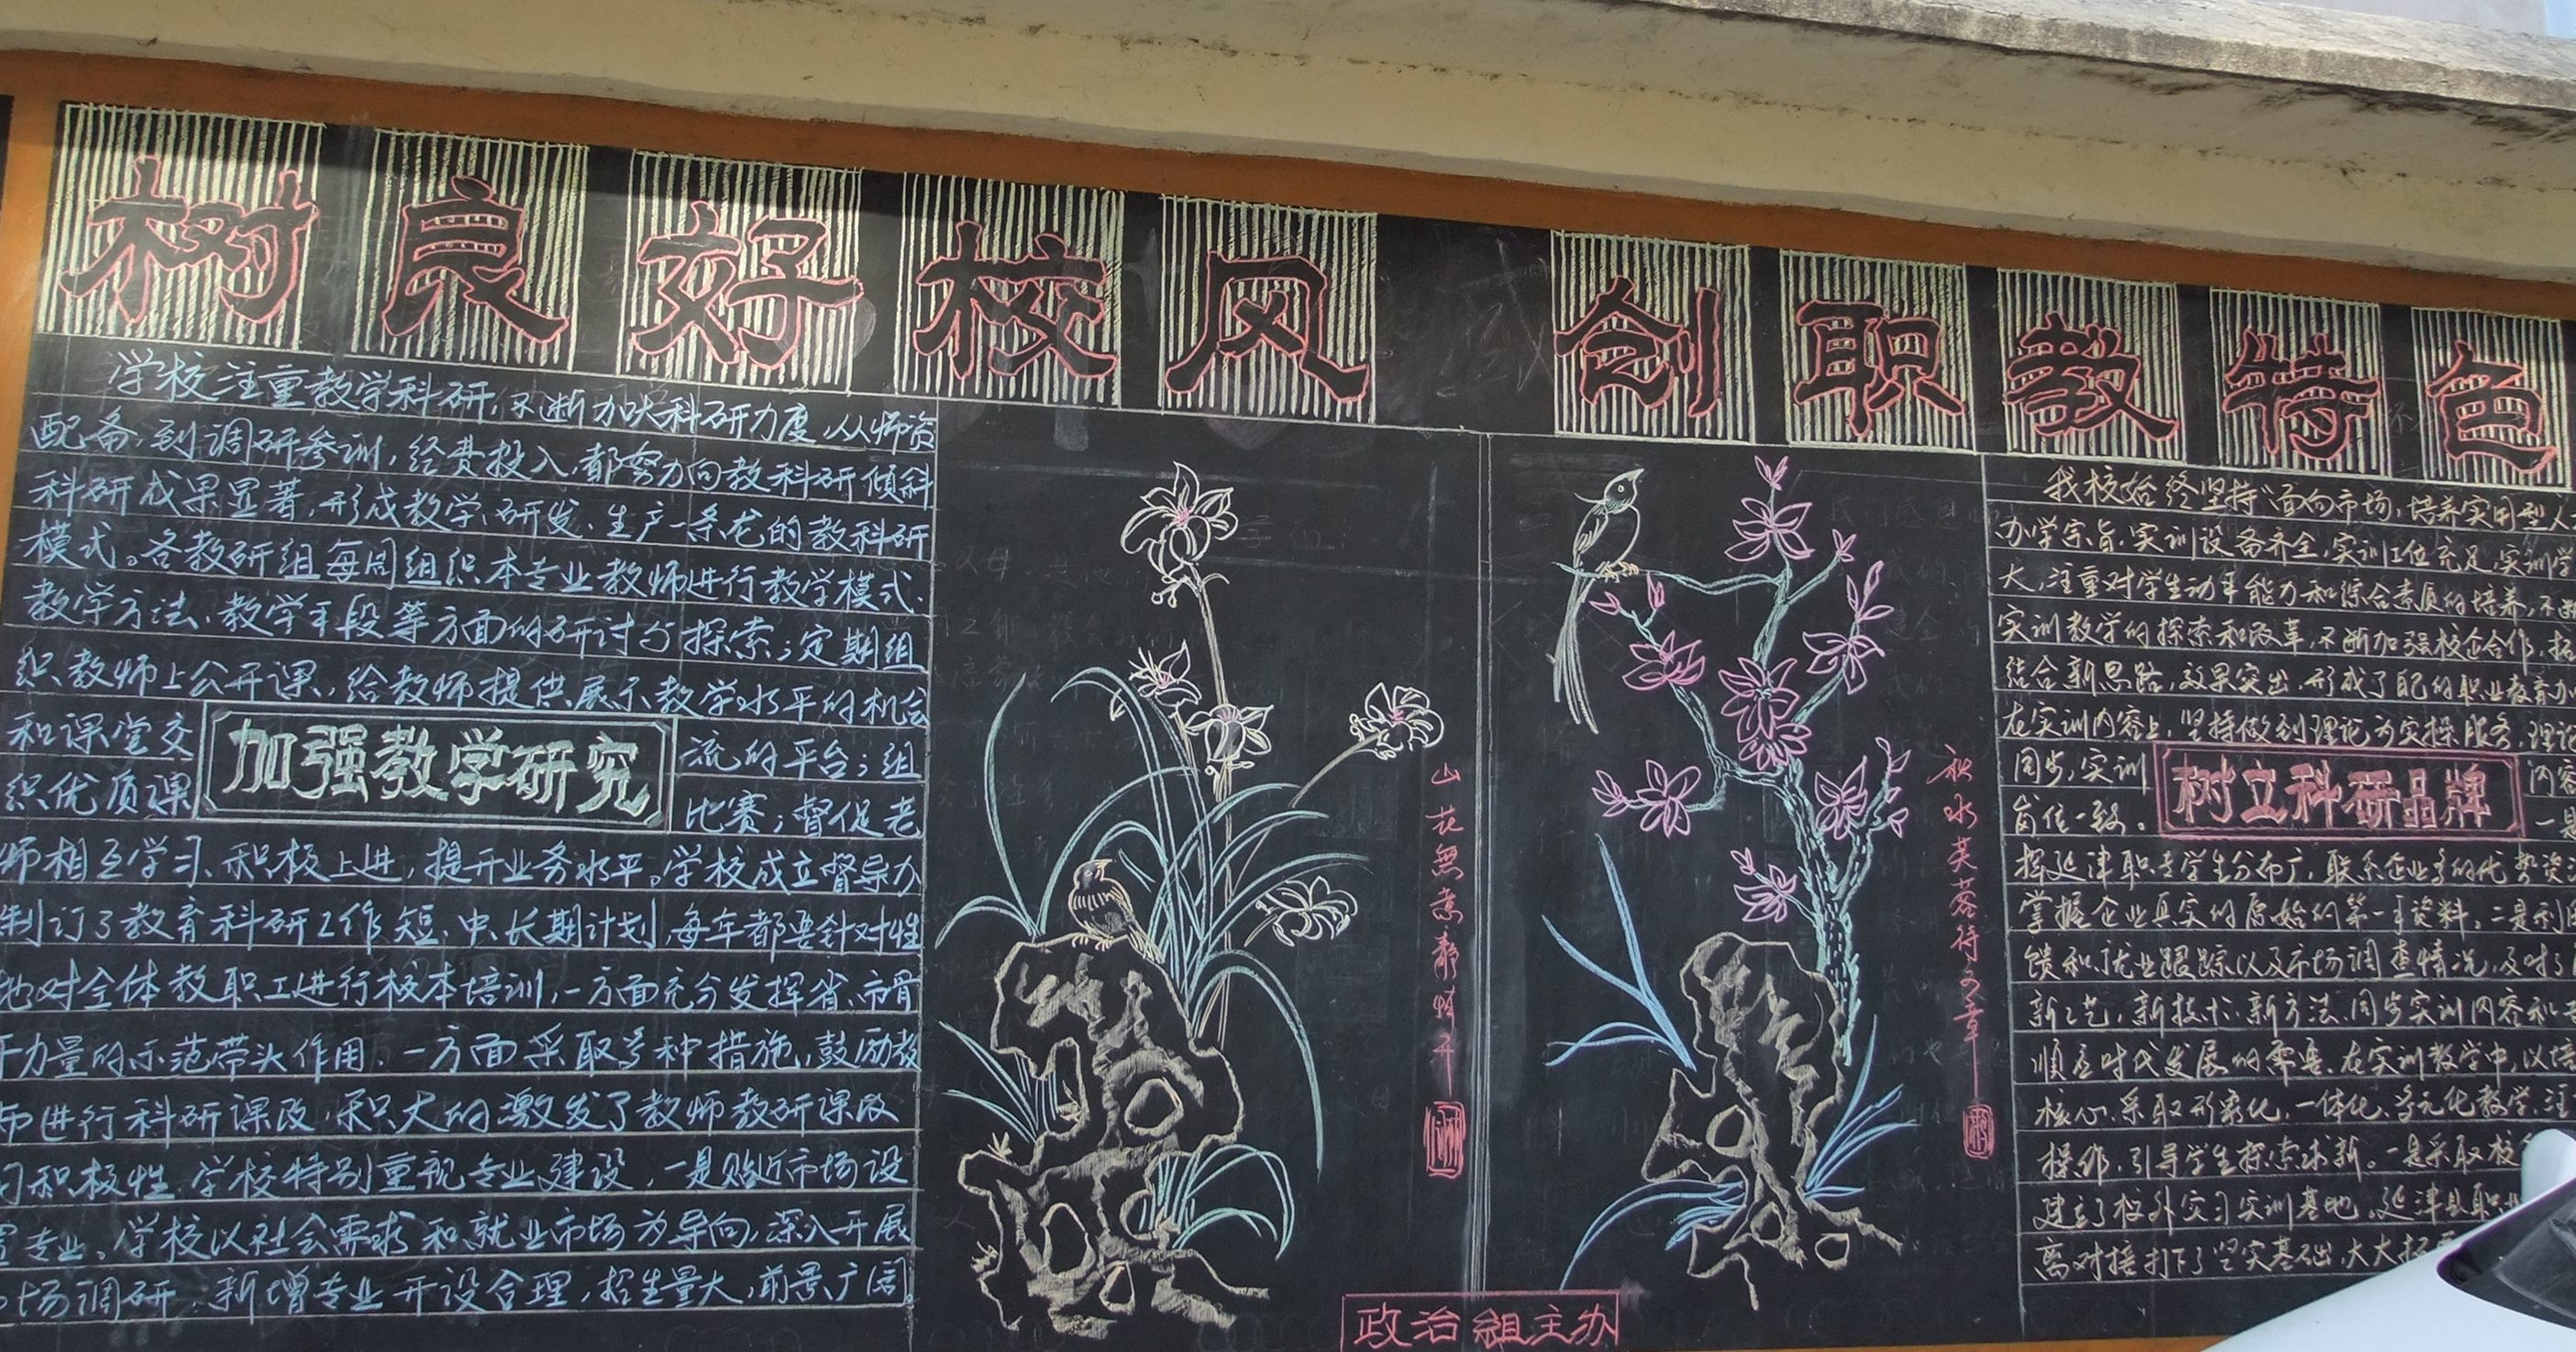 树良好校风 创职教特色
学校注重教学科研,不断加大科研力度,从师资
配备,到调研参训,经费投入,都努力向教科研倾斜
科研成果显著,形成教学、研发、生产一条龙的教科研
模式。各教研组每周组织本专业教师进行教学模式、
教学方法、教学手段等方面的研讨与探索;定期组
织教师上公开课,给教师提供展示教学水平的机会
和课堂交
流的平台;组
织优质课
比赛;督促老
加强教学研究
师相互学习、积极上进,提升业务水平。学校成立督导办
制订了教育科研工作短、中、长期计划,每年都要针对性
地对全体教职工进行校本培训,一方面充分发挥省、市骨
干力量的示范带头作用,一方面采取多种措施,鼓励教
师进行科研课改,积大的激发了教师教研课改
积极性,学校特别重视专业建设,一是贴近市场设
置专业。学校以社会需求和就业市场为导向,深入开展
场调研,新增专业开设合理,招生量大,前景广阔。
山花無意静
开
秋水芙蓉待
政治组主办
我校始终坚持“面向市场,培养实用型人
办学宗旨,实训设备齐全,实训工位充足,实训学
大,注重对学生动手能力和综合素质的培养,不
实训教学的探索和改革,不断加强校企合作,
结合新思路,效果突出,形成了自己的职业教育
在实训内容上,坚持做到理论为实操服务,理论
同步,实训
内容
岗位一致。
一是
树立科研品牌
挥延津职专学生分布广,联系企业多的优势资
掌握企业真实的原始的第一手资料;二是利
馈和就业跟踪以及市场调查情况,及时
新工艺,新技术,新方法,同步实训内容和
顺应时代发展的需要,在实训教学中,以
核心,采取形象化,一体化,多元化教学,注
操作,引导学生探索求新。一是采取校
建立了校外实习实训基地。延津县职
离对接打下了坚实基础,大大